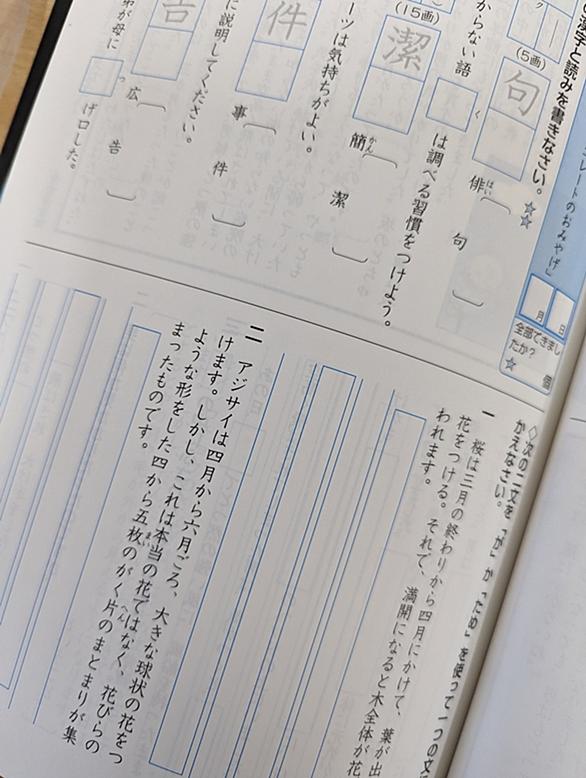 漢字と読みを書きなさい。☆☆
レートのおみやげ」
月
日
全部できまし
たか?
☆
個
(5画)
句
俳 はい
句
からない語
く
は調べる習慣をつけよう。
(15画)
潔
簡 かん
潔
ーツは気持ちがよい。
件
事
件
に説明してください。
告
広
告
弟が母に
つ
げ口した。
◇次の二文を「が」か「ため」を使って一つの文
かえなさい。
一
桜は三月の終わりから四月にかけて、葉が出
花をつける。それで、満開になると木全体が花
われます。
二
アジサイは四月から六月ごろ、大きな球状の花をつ
けます。しかし、これは本当の花ではなく、花びらの
ような形をした四から五枚のがく片のまとまりが集
まい
へん
まったものです。